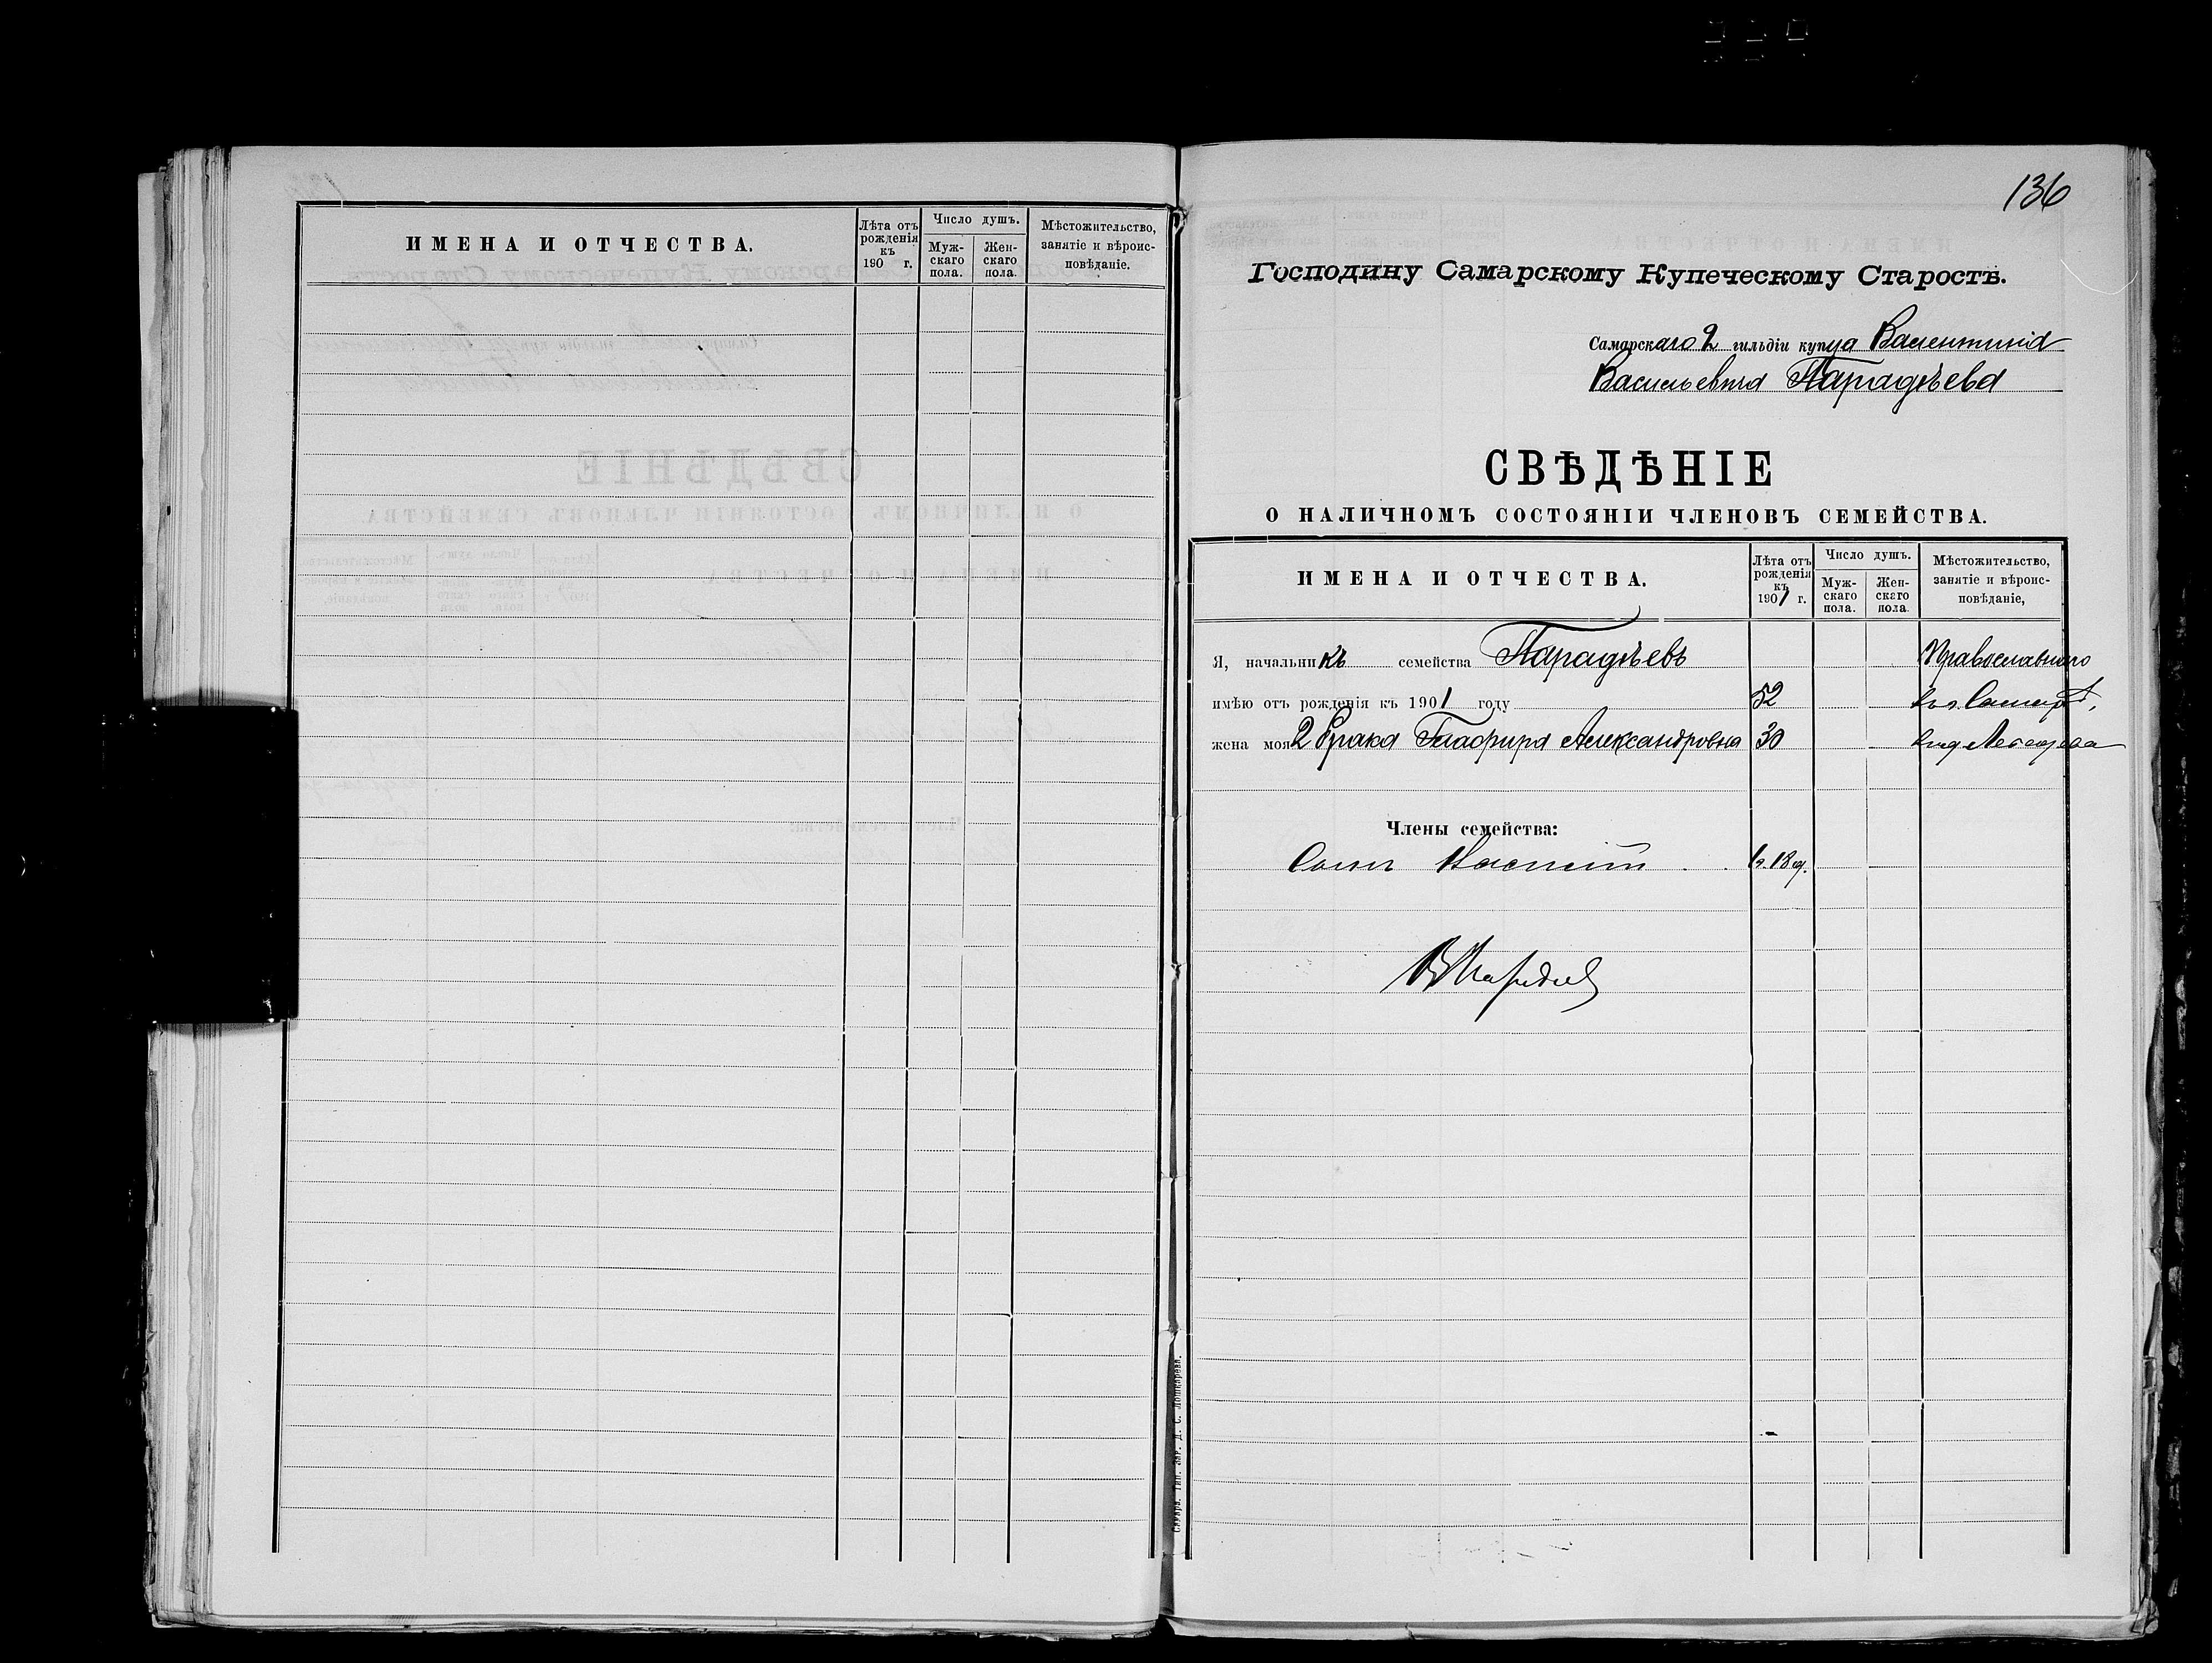 ИМЕНА И ОТЧЕСТВА.
Лѣта отъ рожденія къ 190 г.
Число душъ.
Мужскаго пола.
Женскаго пола.
Мѣстожительство, занятіе и вѣроисповѣданіе.
136
Господину Самарскому Купеческому Старостѣ.
Самарскаго 2 гильдіи купца Валентина
Васильевича Парадѣева
СВѢДѢНІЕ
О НАЛИЧНОМЪ СОСТОЯНІИ ЧЛЕНОВЪ СЕМЕЙСТВА.
ИМЕНА И ОТЧЕСТВА.
Лѣта отъ рожденія къ 1901 г.
Число душъ.
Мужскаго пола.
Женскаго пола.
Мѣстожительство, занятіе и вѣроисповѣданіе,
Я, начальникъ семейства Парадѣевъ Православнаго
имѣю отъ рожденія къ 1901 году 52 въ г. Самарѣ,
жена моя 2 брака Глафира Александровна 30
Члены семейства:
Сынъ 1 г.
В Парадѣев
Самара. Тип. Зар. Д. С. Лошкарева.